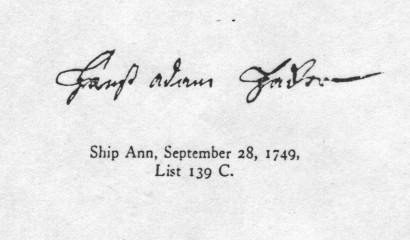 Hanß adam
Ship Ann, September 28, 1749,
List 139 C.